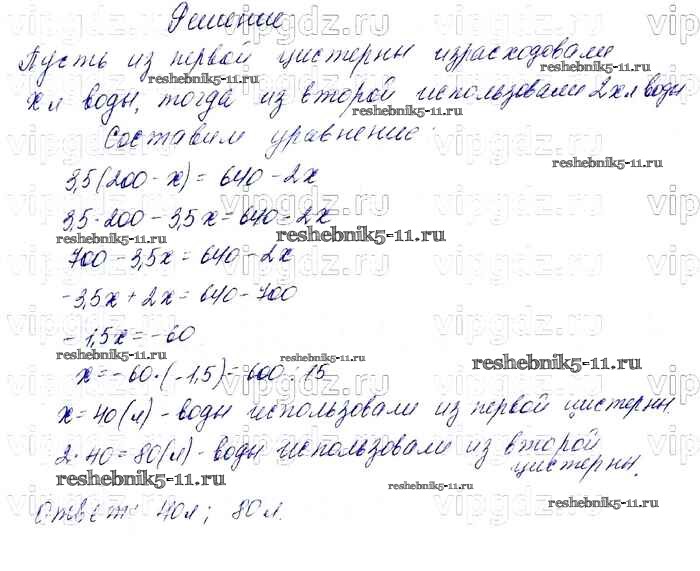 Решение
Пусть из первой цистерны израсходовали
x л воды, тогда из второй использовали 2x л воды
Составим уравнение:
3,5(200 - x) = 640 - 2x
3,5·200 - 3,5x = 640 - 2x
700 - 3,5x = 640 - 2x
-3,5x + 2x = 640 - 700
-1,5x = -60
x = -60·(-1,5) = 600 : 15
x = 40(л) - воды использовали из первой цистерны.
2·40 = 80(л) - воды использовали из второй
цистерны.
Ответ: 40л; 80л.
vipgdz.ru
reshebnik5-11.ru